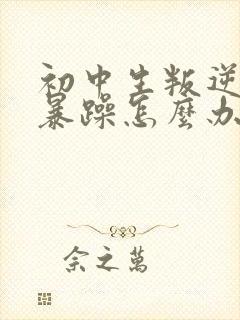 初中生叛逆
暴躁怎麼办
余之萬